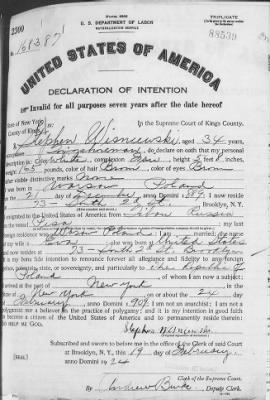 Form 2202
TRIPLICATE
U. S. DEPARTMENT OF LABOR
NATURALIZATION SERVICE
88539
UNITED STATES OF AMERICA
DECLARATION OF INTENTION
Invalid for all purposes seven years after the date hereof
State of New York,
County of Kings,
In the Supreme Court of Kings County.
Stephen Wisniewski, aged 34 years,
occupation, do declare on oath that my personal
description is: Color White, complexion Fair, height 5 feet 8 inches,
weight 165 pounds, color of hair Brown, color of eyes Brown
other visible distinctive marks None
Warsaw Poland
day of December, anno Domini; I now reside
73 - North 28 Brooklyn, N. Y.
I emigrated to the United States of America from Russia
Poland; I am married; the name
of my wife is Eva; United States
and now resides at 73 - North 28 Brooklyn
It is my bona fide intention to renounce forever all allegiance and fidelity to any foreign
prince, potentate, state, or sovereignty, and particularly to The Republic of
Poland, of whom I am now a subject;
I arrived at the port of New York, in the
State of New York, on or about the 22 day
of February, anno Domini 1909; I am not an anarchist; I am not a
polygamist nor a believer in the practice of polygamy; and it is my intention in good faith
to become a citizen of the United States of America and to permanently reside therein:
SO HELP ME GOD.
Stephen Wisniewski
Subscribed and sworn to before me in the office of the Clerk of said Court
at Brooklyn, N. Y., this 19 day of February
anno Domini 1924
[SEAL]
Clerk of the Supreme Court.
By Andrew Burke, Deputy Clerk.